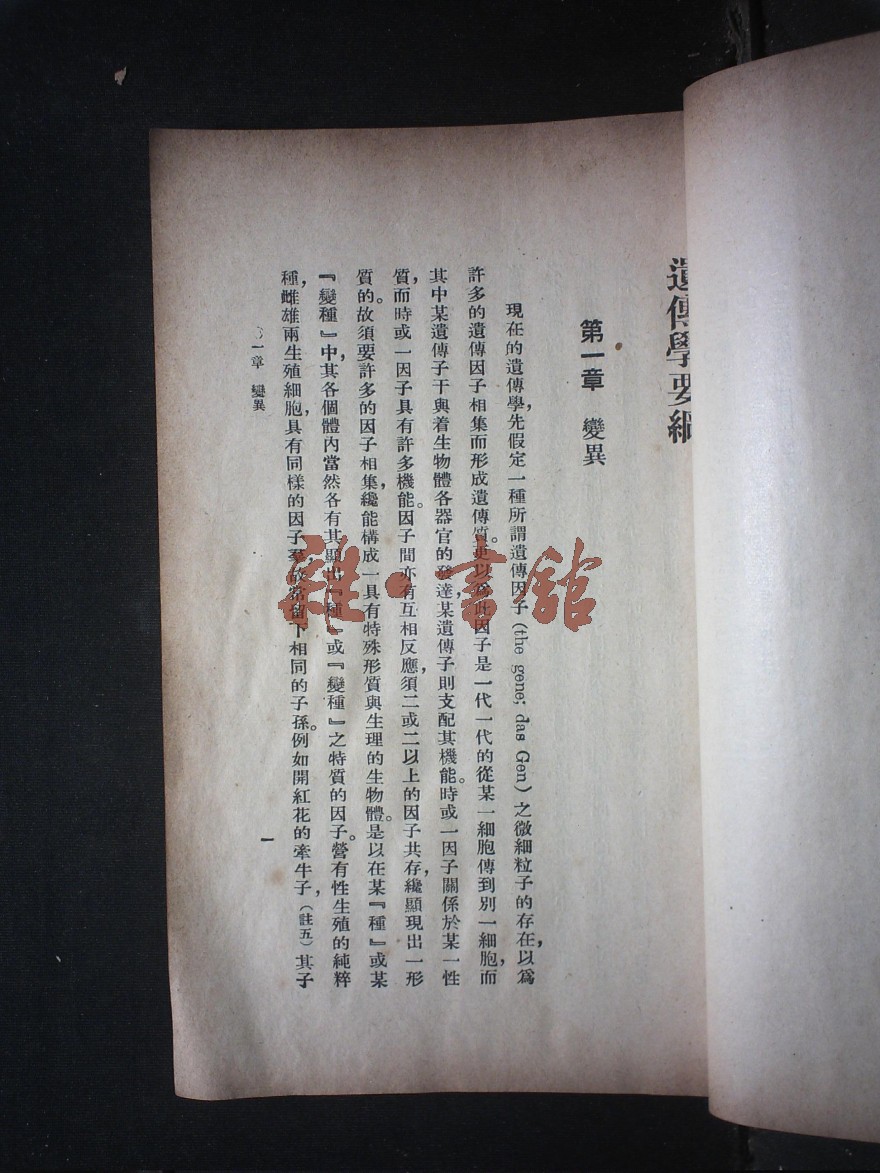 遺傳學要綱
第一章　變異
現在的遺傳學，先假定一種所謂遺傳因子（the gene; das Gen）之微細粒子的存在，以爲
許多的遺傳因子相集而形成遺傳質。更以爲此因子是一代一代的從某一細胞傳到別一細胞，而
其中某遺傳子干與着生物體各器官的發達，某遺傳子則支配其機能。時或一因子關係於某一性
質，而時或一因子具有許多機能。因子間亦有互相反應，須二或二以上的因子共存，纔顯現出一形
質的。故須要許多的因子相集，纔能構成一具有特殊形質與生理的生物體。是以在某『種』或某
『變種』中，其各個體內當然各有其顯出『種』或『變種』之特質的因子。營有性生殖的純粹
種，雌雄兩生殖細胞，具有同樣的因子羣，故常留下相同的子孫。例如開紅花的牽牛子，（註五）其子
第一章　變異
一
雜·書館